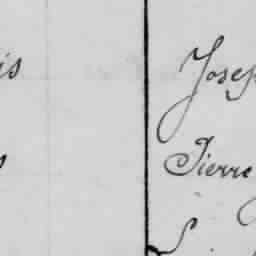 is Josep
s Pierre